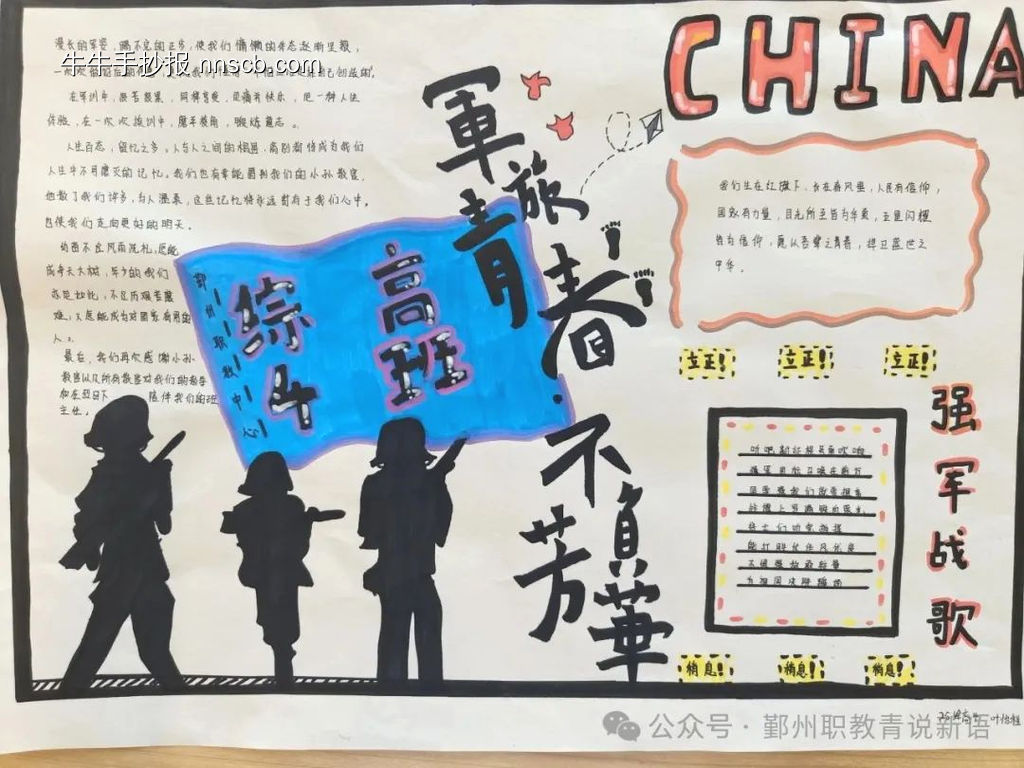 漫长的军姿，踢不完的正步，使我们慵懒的身态逐渐坚毅，
牛牛手抄报 nnscb.com
在军训中，
体验，在一次次拉训中，磨平棱角，锻炼意志。
人生百态，留忆之多，人与人之间的相遇，离别都将成为我们
人生中不可磨灭的记忆。我们也有幸能遇到我们的小孙教官，
他教了我们许多，与人温柔，这些记忆将永远留存于我们心中，
也使我们走向更好的明天。
幼苗不应风雨洗礼，怎能
成参天大树，年少的我们
亦是如此，不应历艰苦磨
难，又怎能成为对国家有用的
人。
最后，我们再次感谢小孙
教官以及所有教官对我们的教导
和在烈日下 陪伴我们的班
主任。
鄞州职教中心
综高
4班
軍旅青春·不負芳華
CHINA
我们生在红旗下，长在春风里，人民有信仰，
国家有力量，目光所至皆为华夏，五星闪耀
皆为信仰，愿以吾辈之青春，捍卫盛世之
中华。
立正! 立正! 立正!
强军战歌
听吧新征程号角吹响
强军目标召唤在前方
国要强我们就要担当
战旗上写满铁血荣光
将士们听党指挥
能打胜仗作风优良
不惧强敌敢较量
为祖国决胜疆场
稍息! 稍息! 稍息!
公众号·鄞州职教青说新语